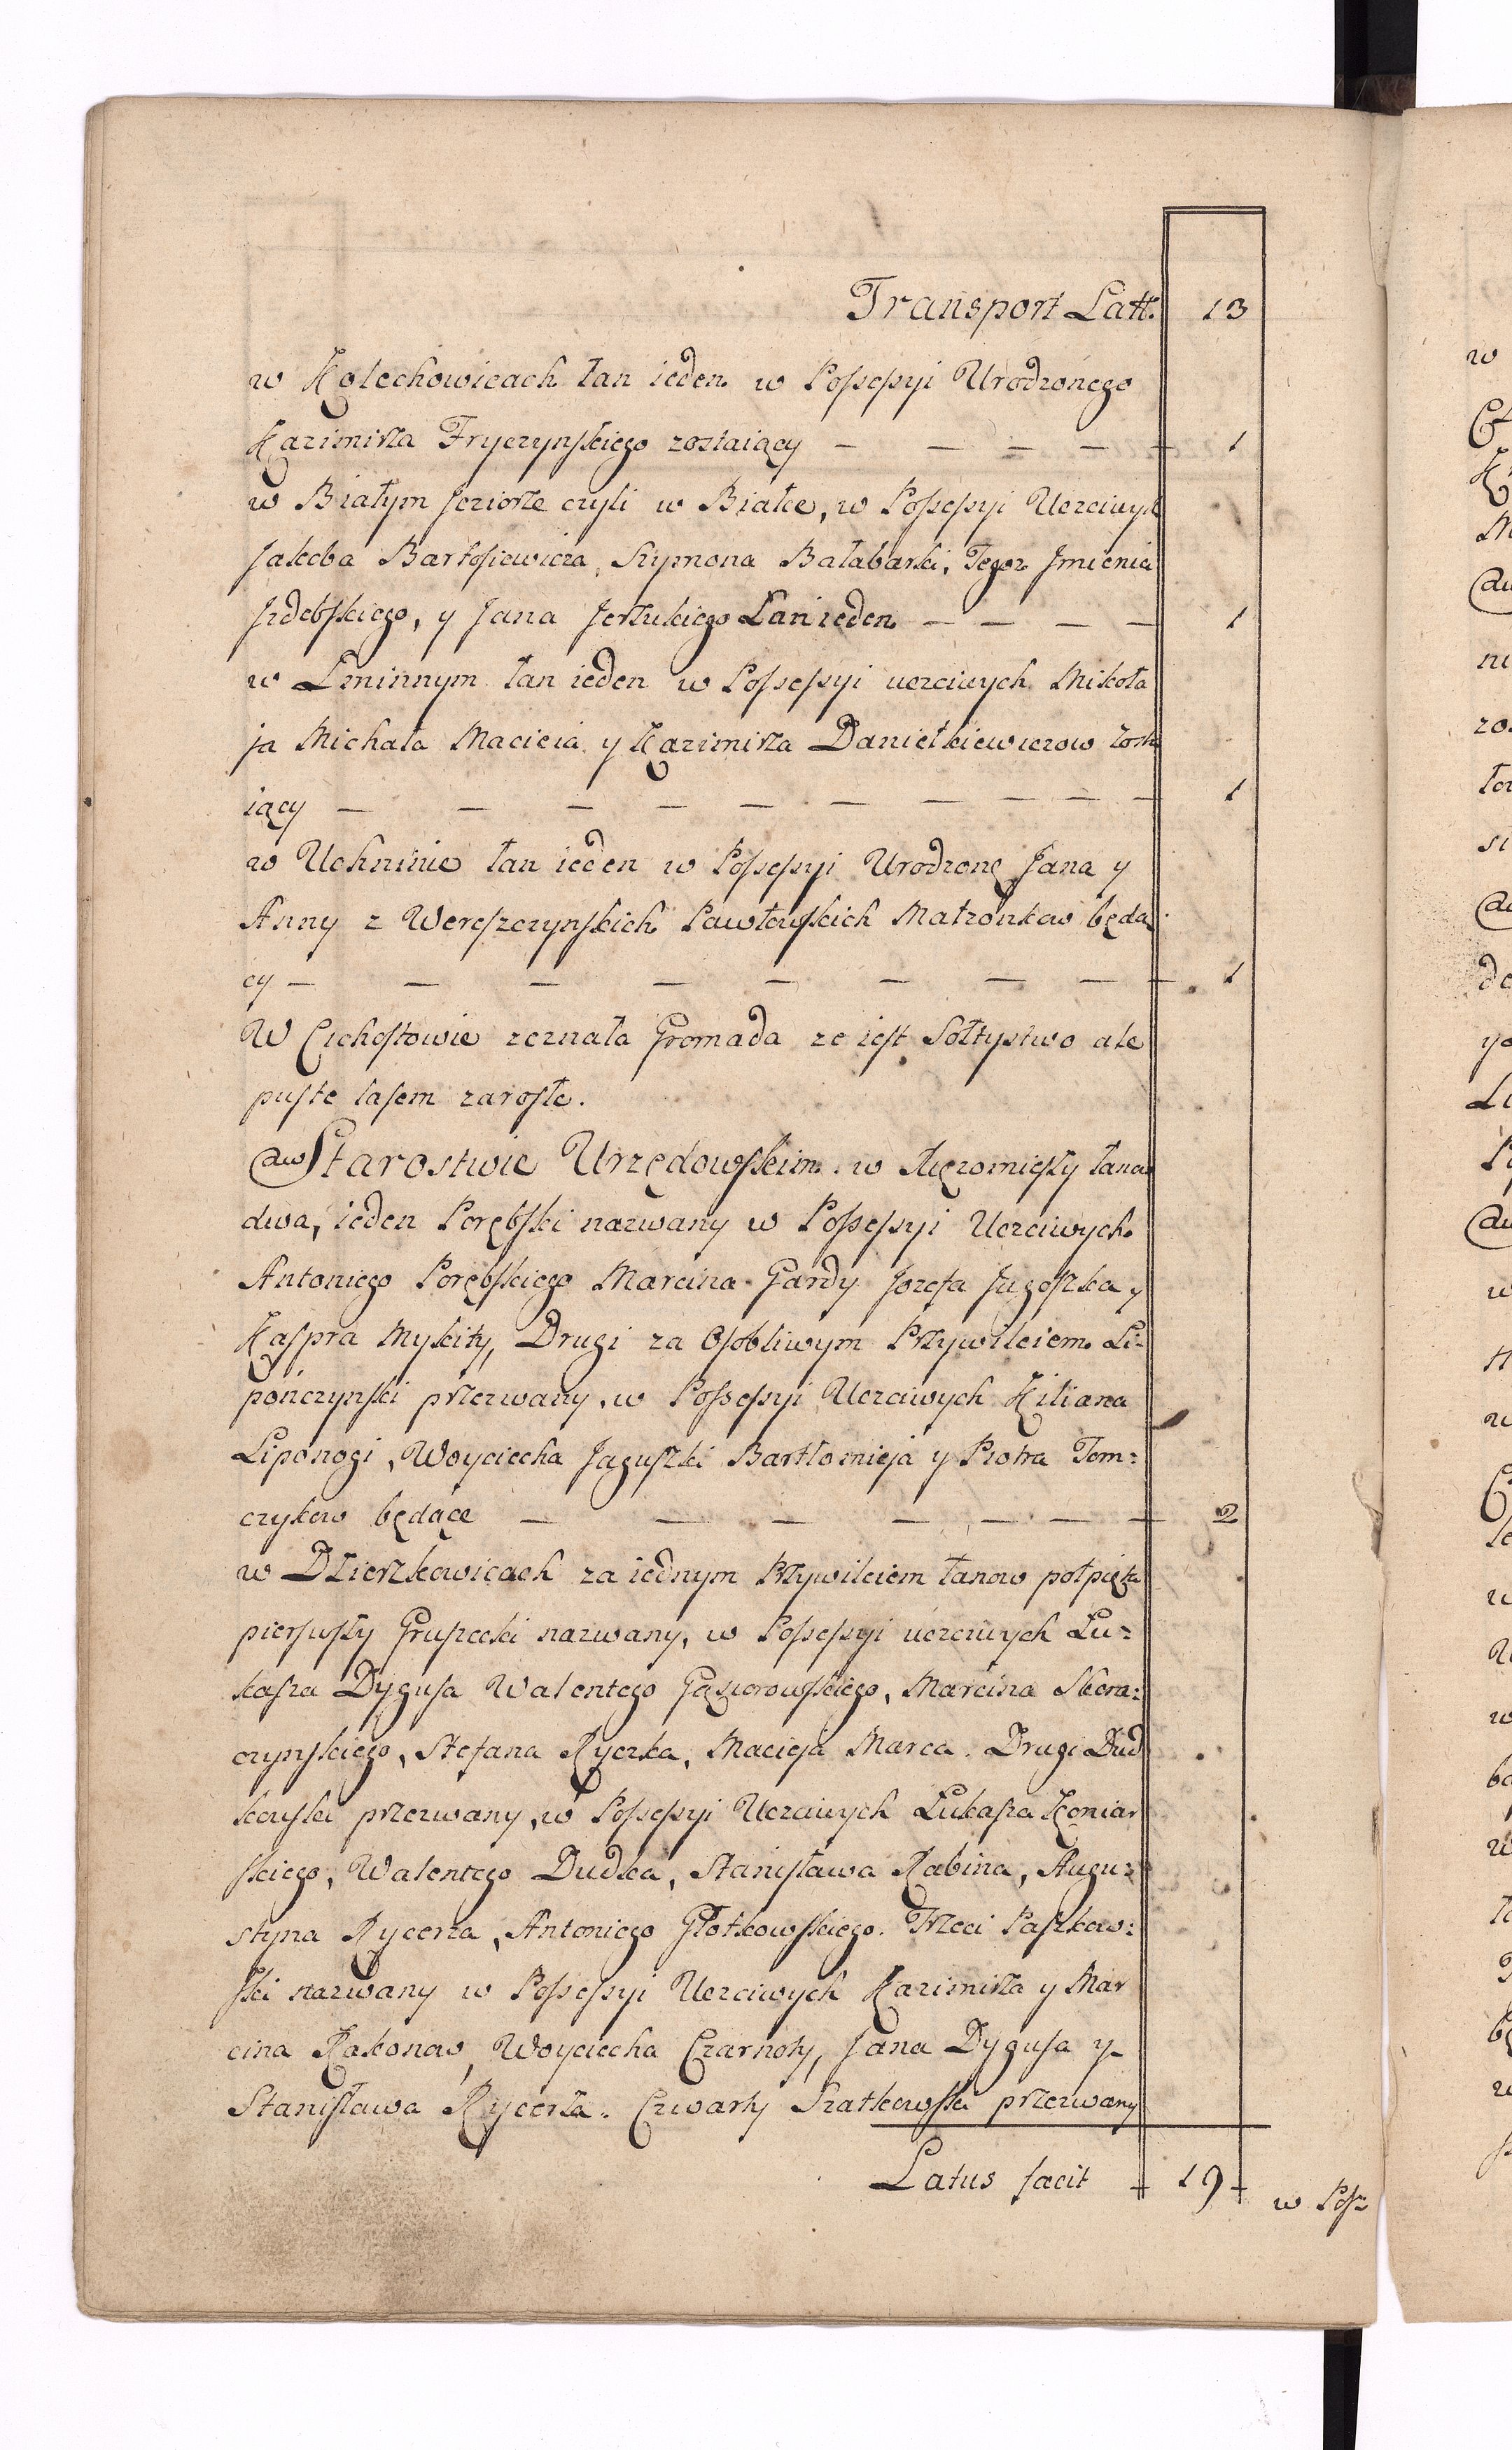 Transport Latt. 13
w Kolechowicach łan ieden w Possessyi Urodzonego
Kazimirza Fryczynskiego zostaiący — — — — — 1
w Białym Jeziorze czyli w Białce, w Possessyi Uczciwych
Jakoba Bartosiewicza, Szymona Bałabarki, Tegoz Jmienia
Jzdebskiego, y Jana Jerzukiego Łan ieden — — — — 1
w Lminnym łan ieden w Possessyi uczciwych Mikoła
ja Michała Macieia y Kazimirza Danielkiewiczow zosta
iący — — — — — — — — — — 1
w Uchninie łan ieden w Possessyi Urodzonę Jana y
Anny z Wereszczynskich Pawłowskich Małzonkow będą
cy — — — — — — — — — 1
W Cichostowie zeznała Gromada ze iest Sołtystwo ale
puste lasem zarosłe.
w Starostwie Urzędowskim w łanow
dwa, ieden Porębski nazwany w Possessyi Uczciwych
Antoniego Porębskiego Marcina Gardy Jozefa Jugoszka y
Kaspra Mykity, Drugi za Osobliwym Przywileiem Li-
pończynski przezwany, w Possessyi Uczciwych Kiliana
Liponogi, Woyciecha Jaguszki Bartłomieja y Piotra Tom=
czykow będące — — — — — — — 2
w Dzierzkowicach za iednym Przywileiem łanow połpięta
pierwszy Gruszecki nazwany, w Possessyi uczciwych Łu=
kasza Dygusa Walentego Gąsiorowskiego, Marcina Skora=
czynskiego, Stefana Ryczka, Macieja Marca. Drugi Dud
kowski przezwany, w Possessyi Uczciwych Łukasza Koniar
skiego, Walentego Dudka, Stanisława Rabina, Augu=
styna Rycerza, Antoniego Głotkowskiego. Trzeci Paszkow=
ski nazwany w Possessyi Uczciwych Kazimirza y Mar
cina Rakonow, Woyciecha Czarnoty, Jana Dygusa y
Stanisława Rycerza. Czwarty Szatkowski przezwany
Latus facit 19
w Poss